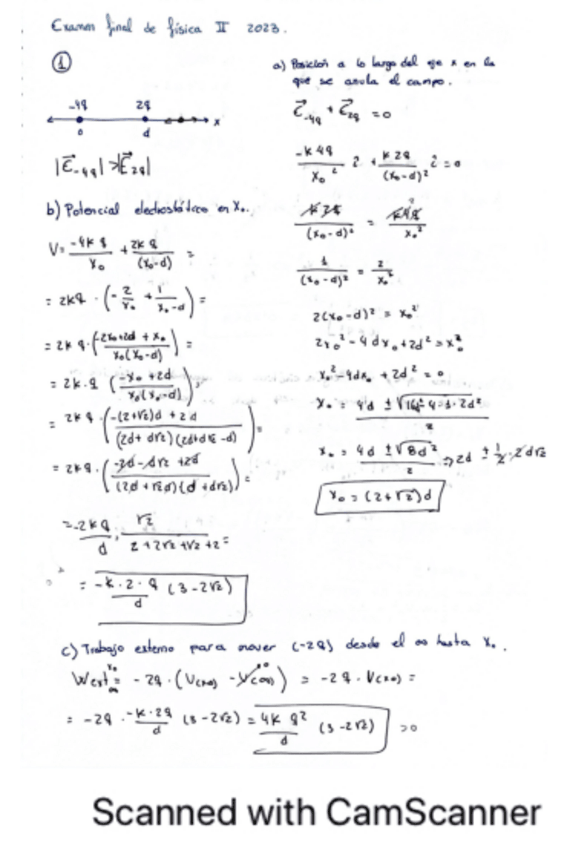 Examen final de física II 2023.
①
-4q 2q
0 d x
|E⃗-4q| > |E⃗2q|
a) Posición a lo largo del eje x en la
que se anula el campo.
E⃗-4q + E⃗2q = 0
-K 4q / x₀² î + K 2q / (x₀-d)² î = 0
K 2q / (x₀-d)² = K 4q / x₀²
1 / (x₀-d)² = 2 / x₀²
2(x₀-d)² = x₀²
2x₀² - 4dx₀ + 2d² = x₀²
x₀² - 4dx₀ + 2d² = 0
x₀ = 4d ± √(16d² - 4·1·2d²) / 2
x₀ = 4d ± √(8d²) / 2 => 2d ± 1/2 · 2d√2
x₀ = (2+√2)d
b) Potencial electrostático en x₀.
V = -4K q / x₀ + 2K q / (x₀-d) =
= 2Kq · (-2/x₀ + 1/(x₀-d)) =
= 2K q · (-2x₀+2d + x₀ / x₀(x₀-d)) =
= 2K·q (-x₀ + 2d / x₀(x₀-d)) =
= 2K q · (-(2+√2)d + 2d / (2d + d√2)(2d+d√2 - d)) =
= 2Kq · (-2d - d√2 + 2d / (2d + √2d)(d + d√2)) =
= -2Kq / d · √2 / 2 + 2√2 + √2 + 2 =
= -K·2·q / d (3 - 2√2)
c) Trabajo externo para mover (-2q) desde el ∞ hasta x₀.
Wext ∞ x₀ = -2q · (V(x₀) - V(∞)) = -2q · V(x₀) =
= -2q · -K·2q / d (3 - 2√2) = 4K q² / d (3 - 2√2) > 0
Scanned with CamScanner